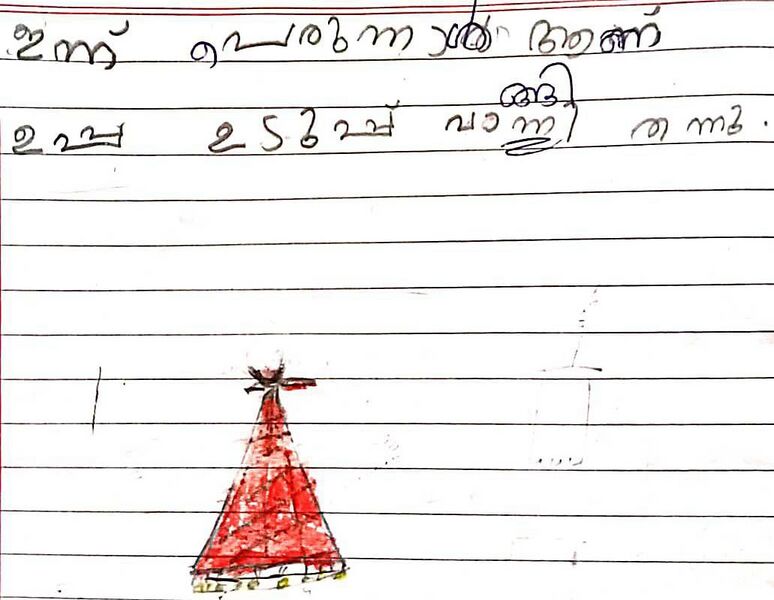 ഇന്ന് പെരുന്നാൾ ആണ്
ങ്ങി
ഉപ്പ ഉടുപ്പ് വാന്നി തന്നു.